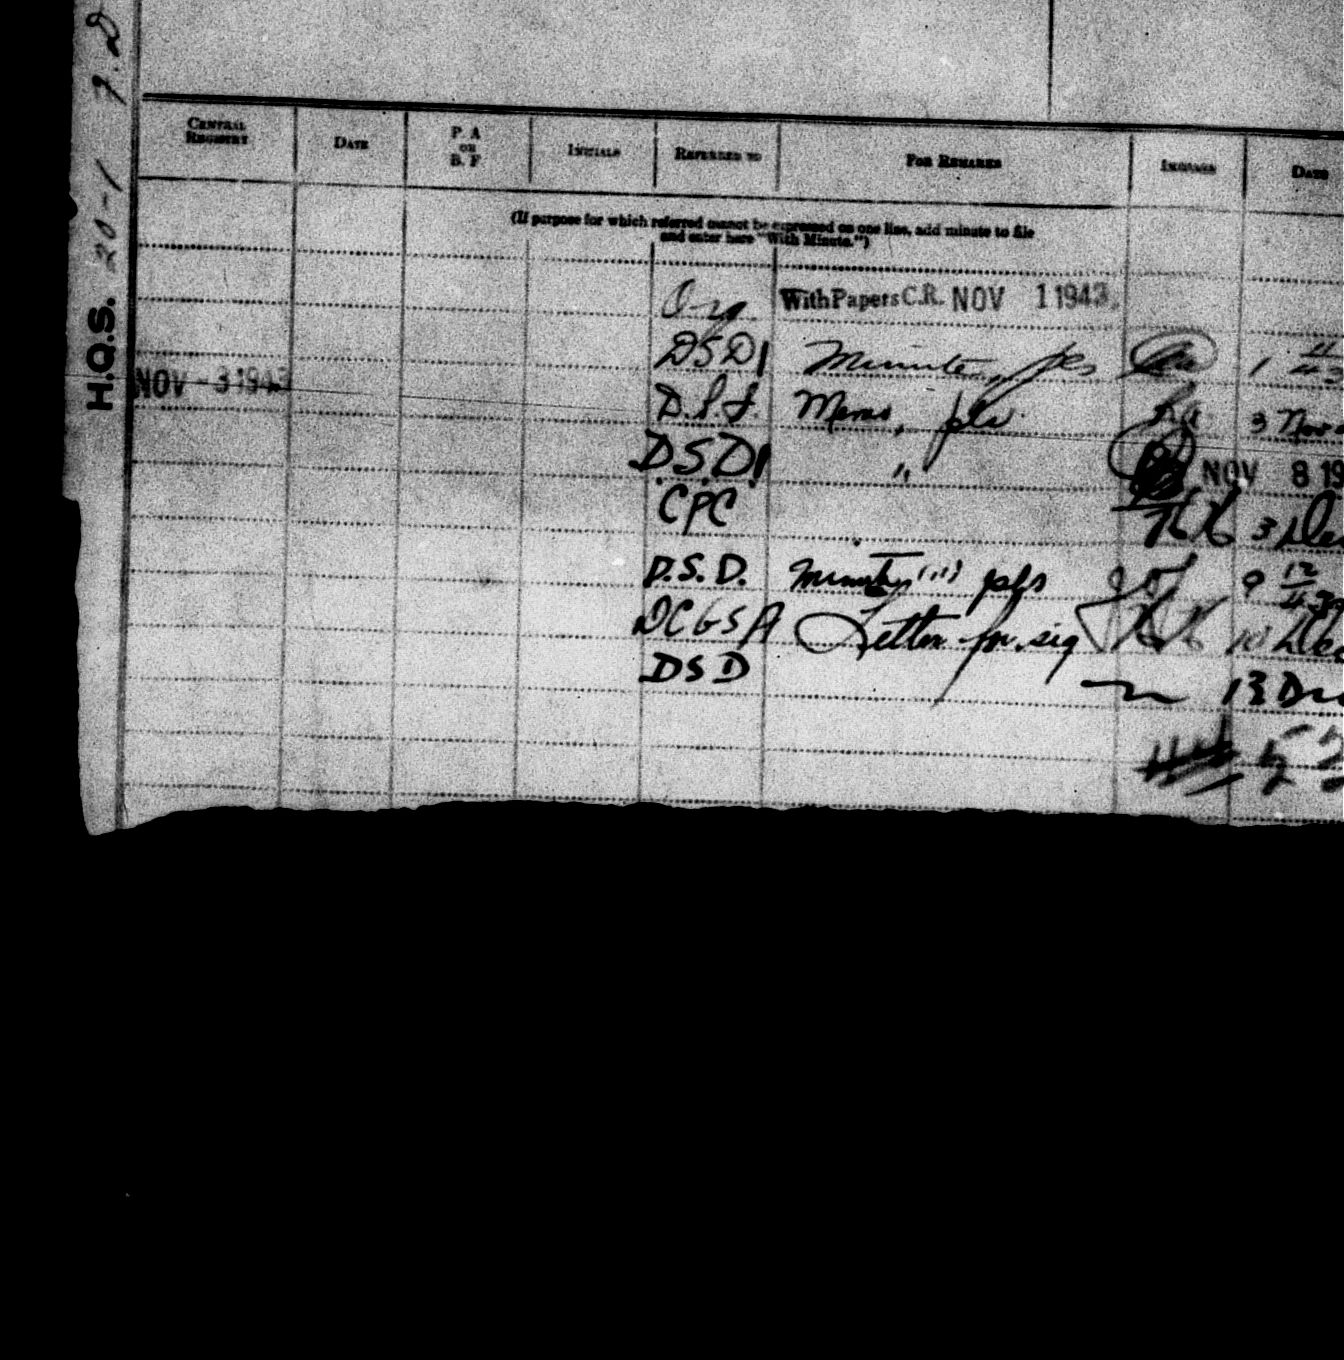 H.Q.S. 20-1
CENTRAL REGISTRY DATE P. A OR B. F INITIALS REFERRED TO FOR REMARKS INITIALS DATE
(If purpose for which referred cannot be expressed on one line, add minute to file
and enter here "With Minute.")
Org With Papers C.R. NOV 1 1943
DSD1 Minute, pls 1 11/43
NOV - 3 1943
Memo, pls 3 Nov
D.S.D1 " NOV 8 19
CPC 3 Dec
D.S.D. Minute pls 9 12/43
DCGSA Letter for sig 10 Dec
DSD 13